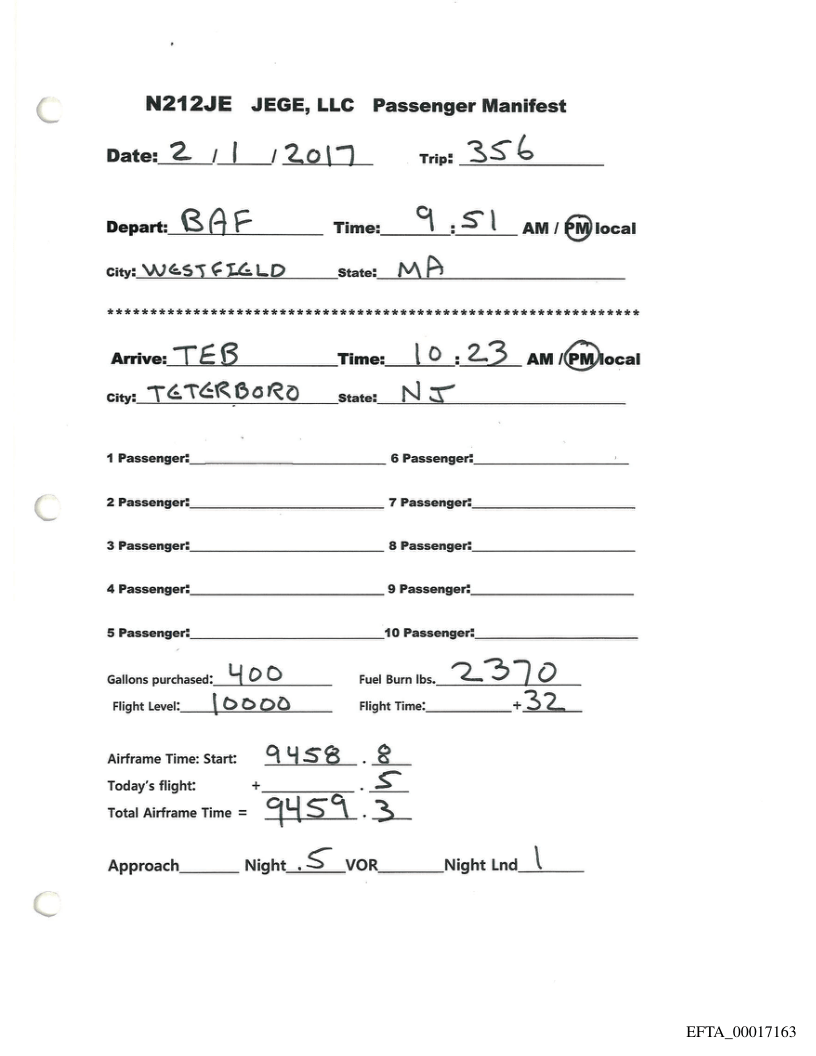 N212JE JEGE, LLC Passenger Manifest
Date: 2 / 1 / 2017 Trip: 356
Depart: BAF Time: 9 : 51 AM / PM local
City: WESTFIELD State: MA
****************************************************************
Arrive: TEB Time: 10 : 23 AM / PM local
City: TETERBORO State: NJ
1 Passenger: 6 Passenger:
2 Passenger: 7 Passenger:
3 Passenger: 8 Passenger:
4 Passenger: 9 Passenger:
5 Passenger: 10 Passenger:
Gallons purchased: 400 Fuel Burn lbs. 2370
Flight Level: 10000 Flight Time: + 32
Airframe Time: Start: 9458 . 8
Today's flight: + . 5
Total Airframe Time = 9459 . 3
Approach Night .5 VOR Night Lnd 1
EFTA_00017163